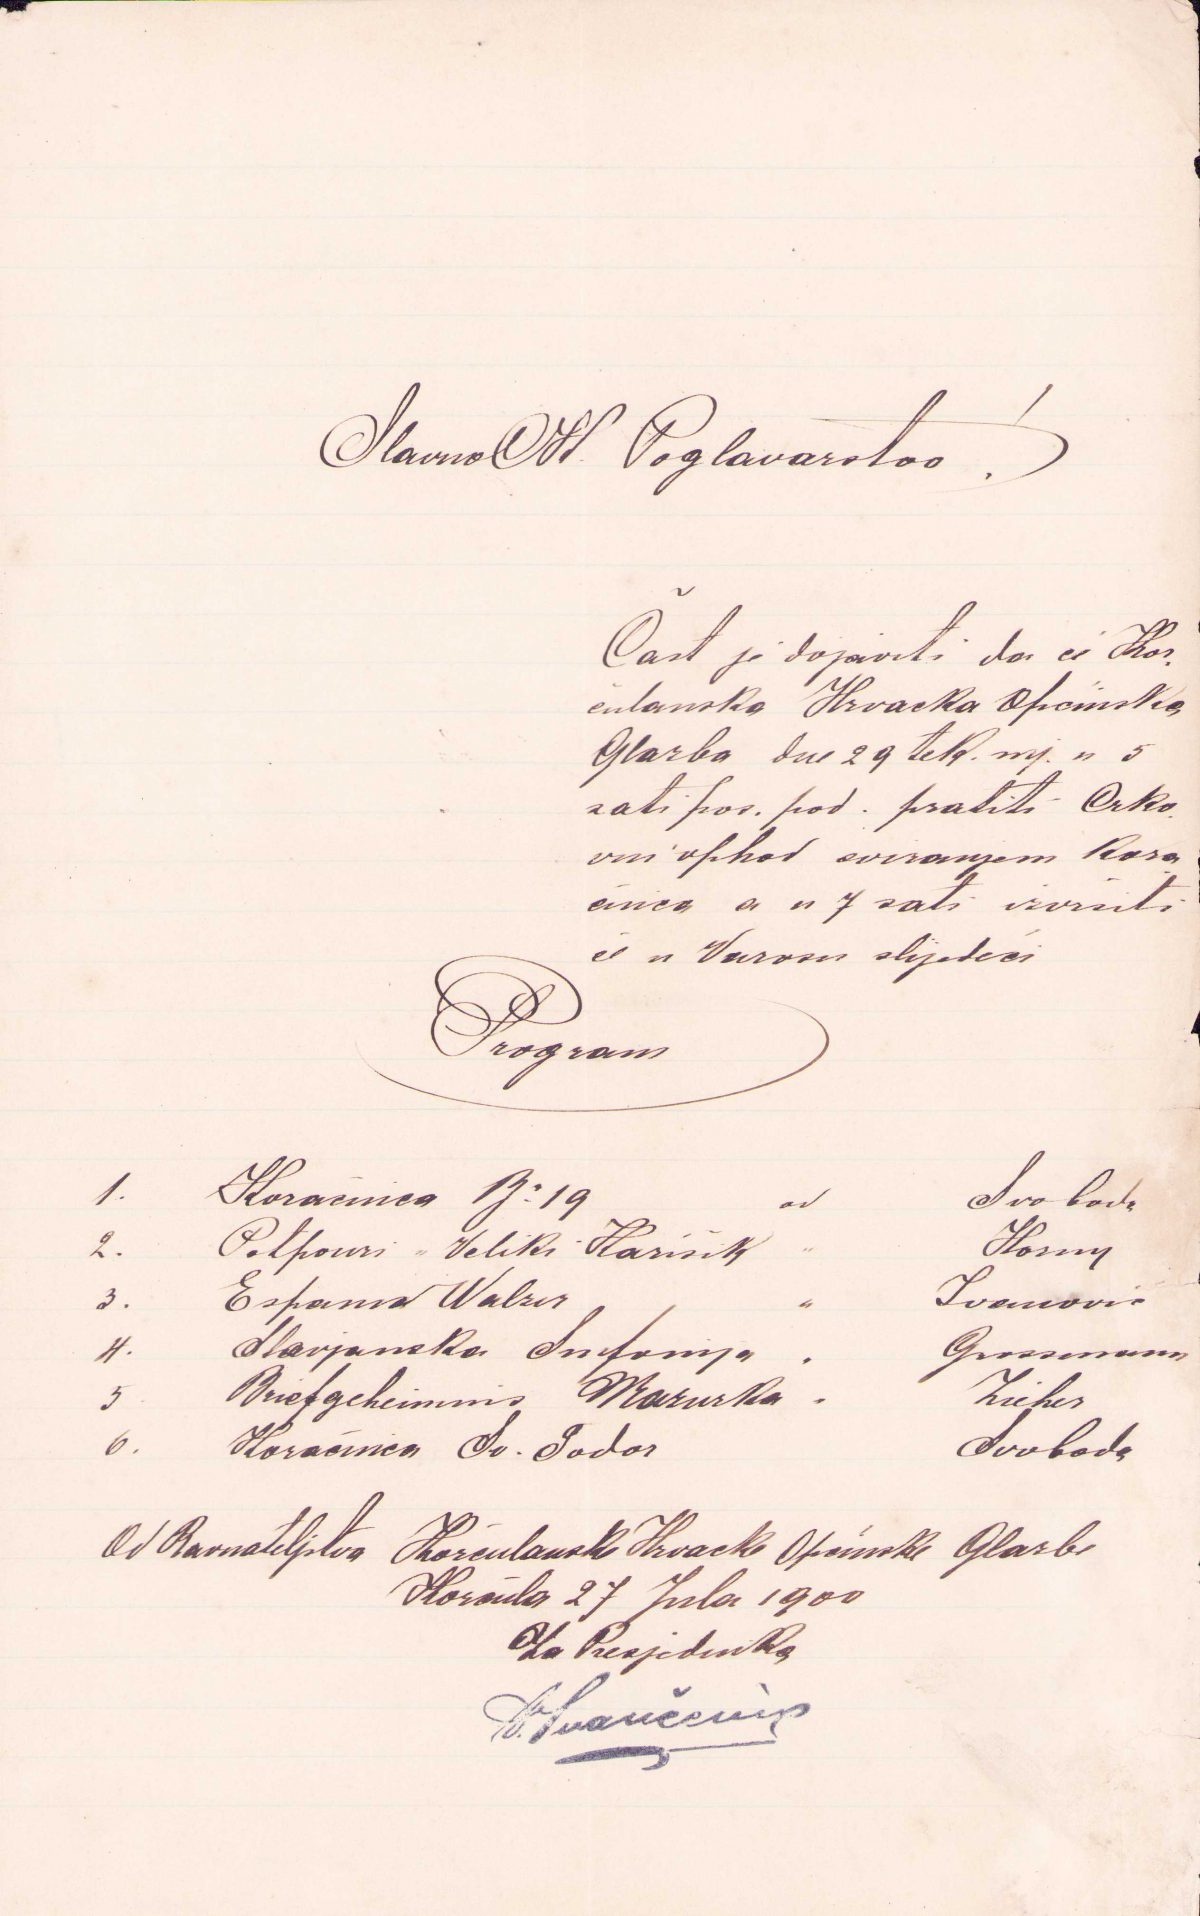 Slavno C.K. Poglavarstvo!
Čast je dojaviti da će Kor-
čulanska Hrvacka Općinska
Glazba dne 29 tek. mj. u 5
sati pos. pod. pratiti Crko-
vni ophod sviranjem kora
čnica a u 7 sati izvršiti
će u Varosu slijedeći
Program
1. Koračnica Br. 19 od Svoboda
2. Potpouri „ Veliki Karišik " Korny
3. Espana Walzer " Ivanović
4. Slavjanska Sinfonija " Grossmann
5 Briefgeheimnis Mazurka " Zieher
6. Koračnica Sv. Todor Svoboda
Od Ravnateljstva Korčulanske Hrvacke Općinske Glazbe
Korčula 27 Jula 1900
Za Presjednika